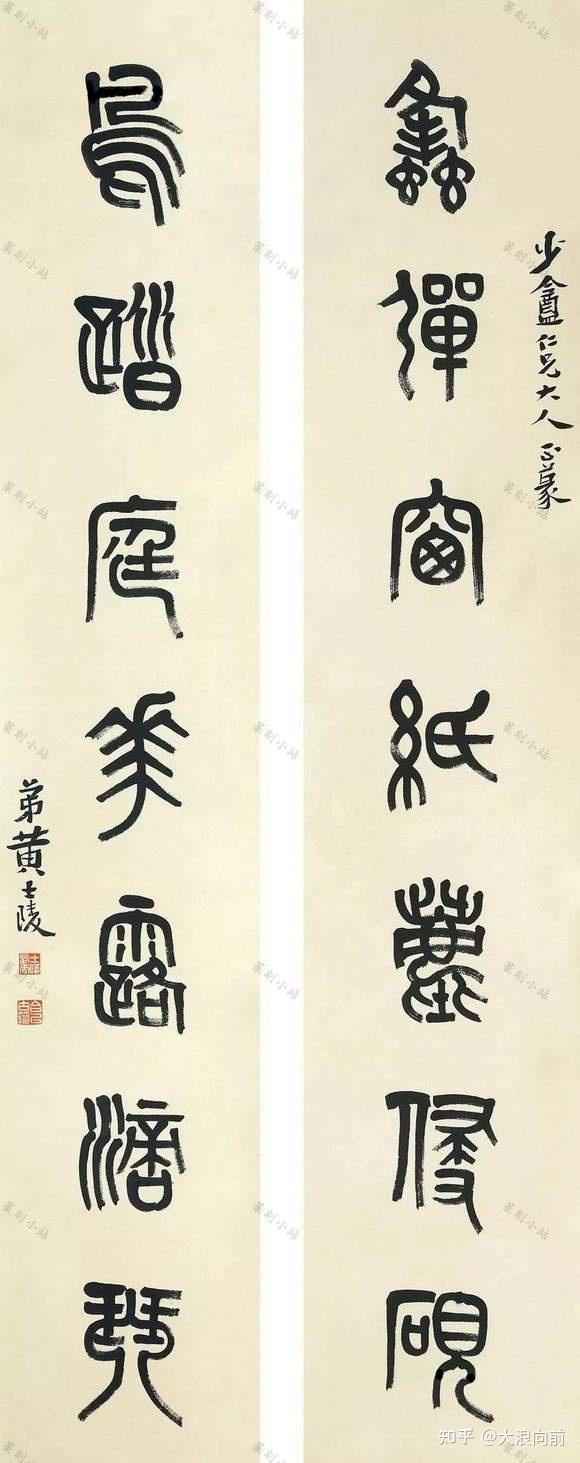 蠭彈窗紙塵侵硯
少盦仁兄大人正篆
鳥踏庭花露滴琴
弟黃士陵
篆刻小站
知乎 @大浪向前